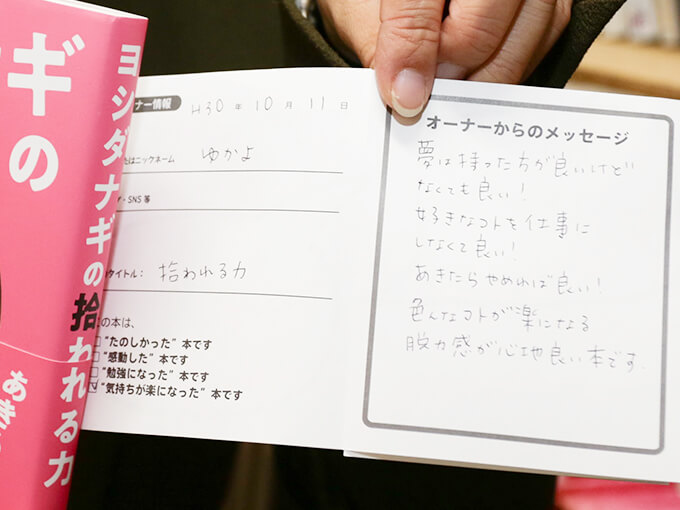 ギの
ヨシダナギの拾われる力
あき
ナー情報
H30年10月11日
たはニックネーム ゆかよ
・SNS等
タイトル： 拾われる力
の本は、
"たのしかった" 本です
"感動した" 本です
"勉強になった" 本です
"気持ちが楽になった" 本です
オーナーからのメッセージ
夢は持った方が良いけど
なくても良い！
好きなコトを仕事に
しなくて良い！
あきたらやめれば良い！
色んなコトが楽になる
脱力感が心地良い本です.